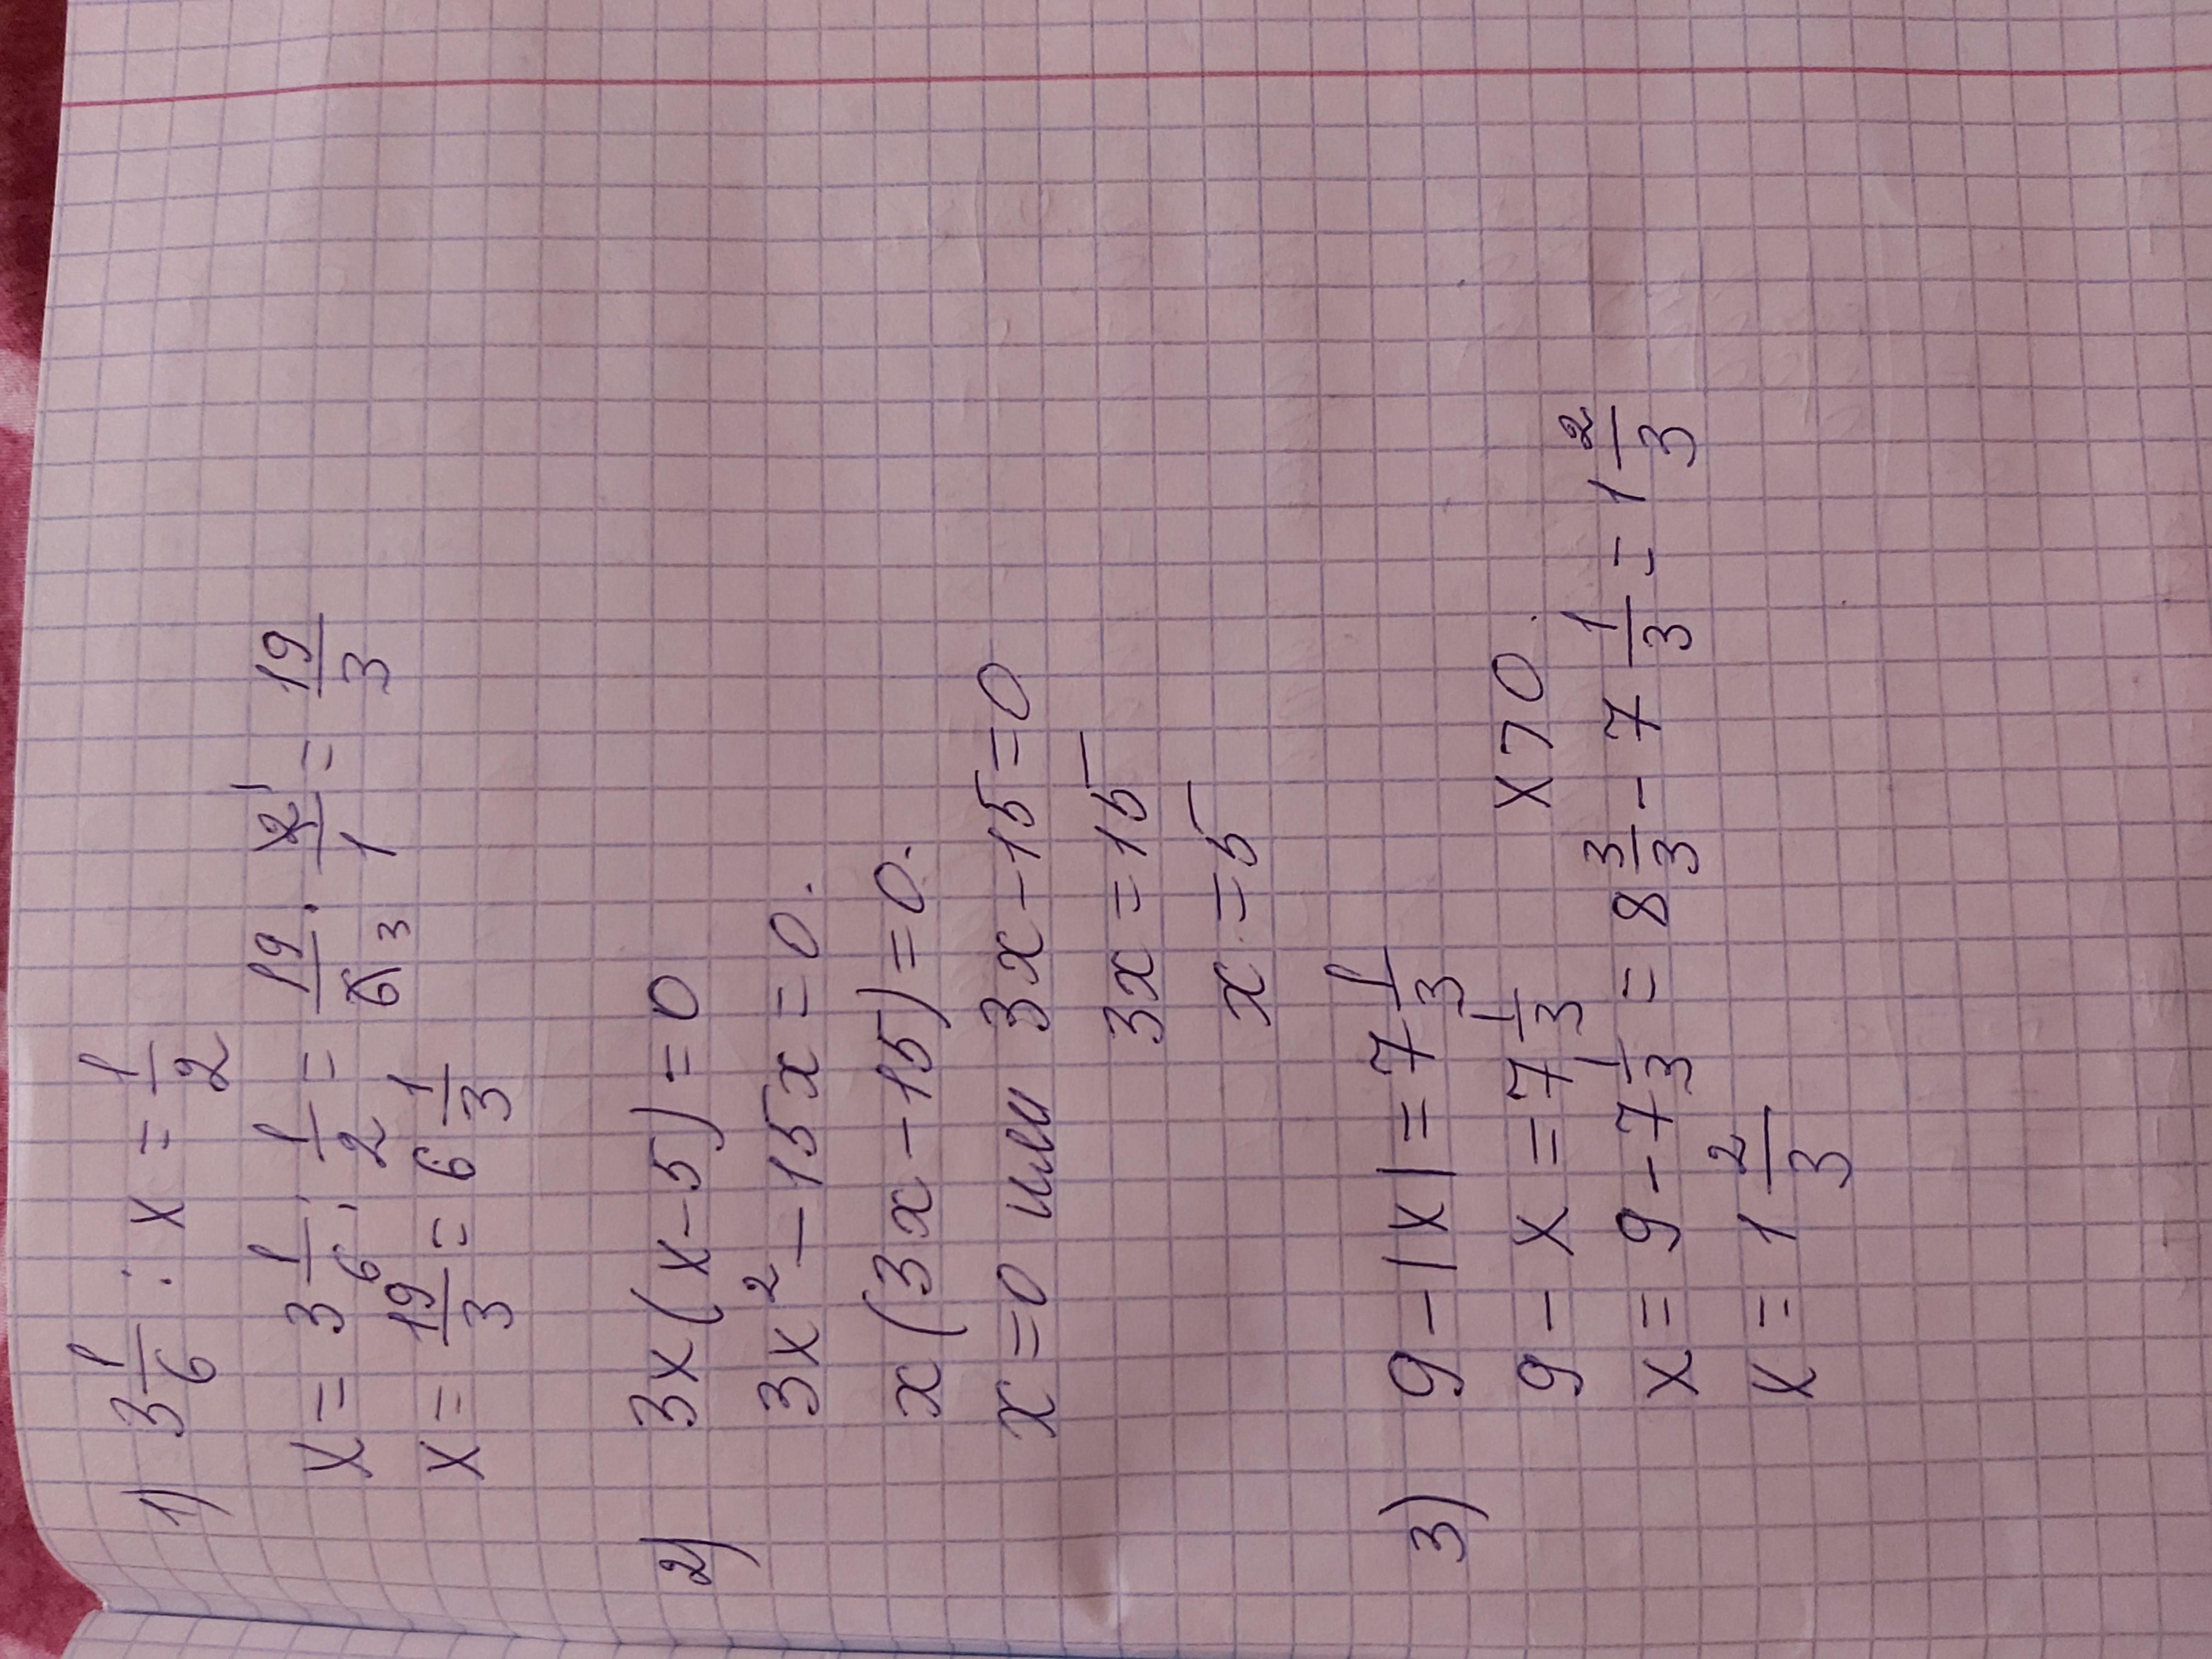 1) 3 1/6 : x = 1/2
x = 3 1/6 : 1/2 = 19/6 3 · 2 1/1 = 19/3
x = 19/3 = 6 1/3
2) 3x(x-5)=0
3x²-15x=0.
x(3x-15)=0.
x=0 или 3x-15=0
3x=15
x=5
3) 9-|x|=7 1/3
9-x=7 1/3 x>0.
x=9-7 1/3=8 3/3-7 1/3=1 2/3
x=1 2/3